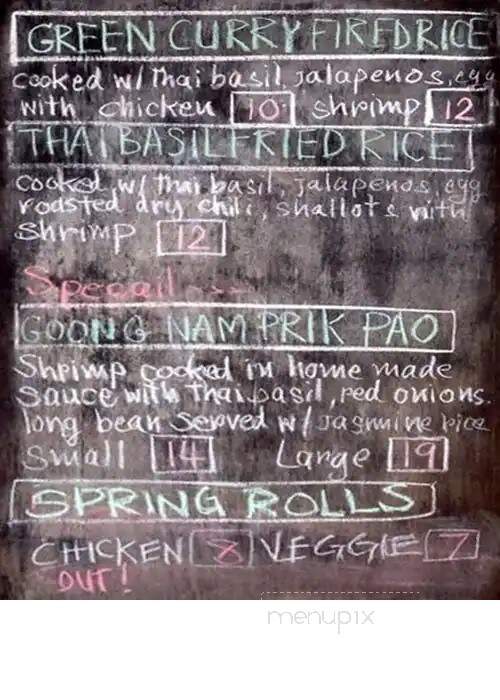 GREEN CURRY FIREDRICE
cooked w/ Thai basil, jalapenos, egg
with chicken 10 shrimp 12
THAI BASIL FRIED RICE
cooked w/ Thai basil, jalapenos, egg
roasted dry chili, shallots with
shrimp 12
Specail
GOONG NAM PRIK PAO
Shrimp cooked in home made
sauce with Thai basil, red onions.
long bean served w/ Jasmine rice
Small 14 Large 19
SPRING ROLLS
CHICKEN 8 VEGGIE 7
OUT!
menupix